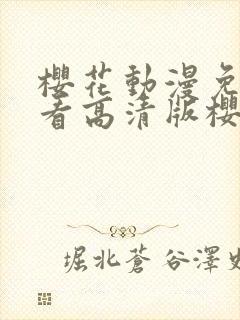 櫻花動漫免
看高清版櫻
堀北蒼谷澤